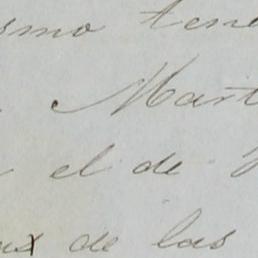 smo tene
Mart
el de
de las